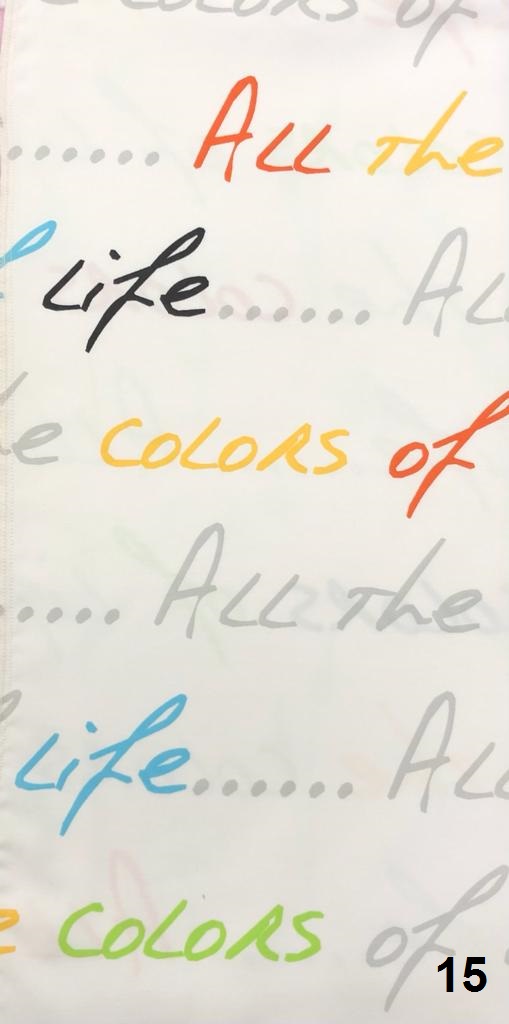 COLORS of
...... ALL The
f Life...... AL
e COLORS of
.... ALL The
Life...... AL
e COLORS of
15